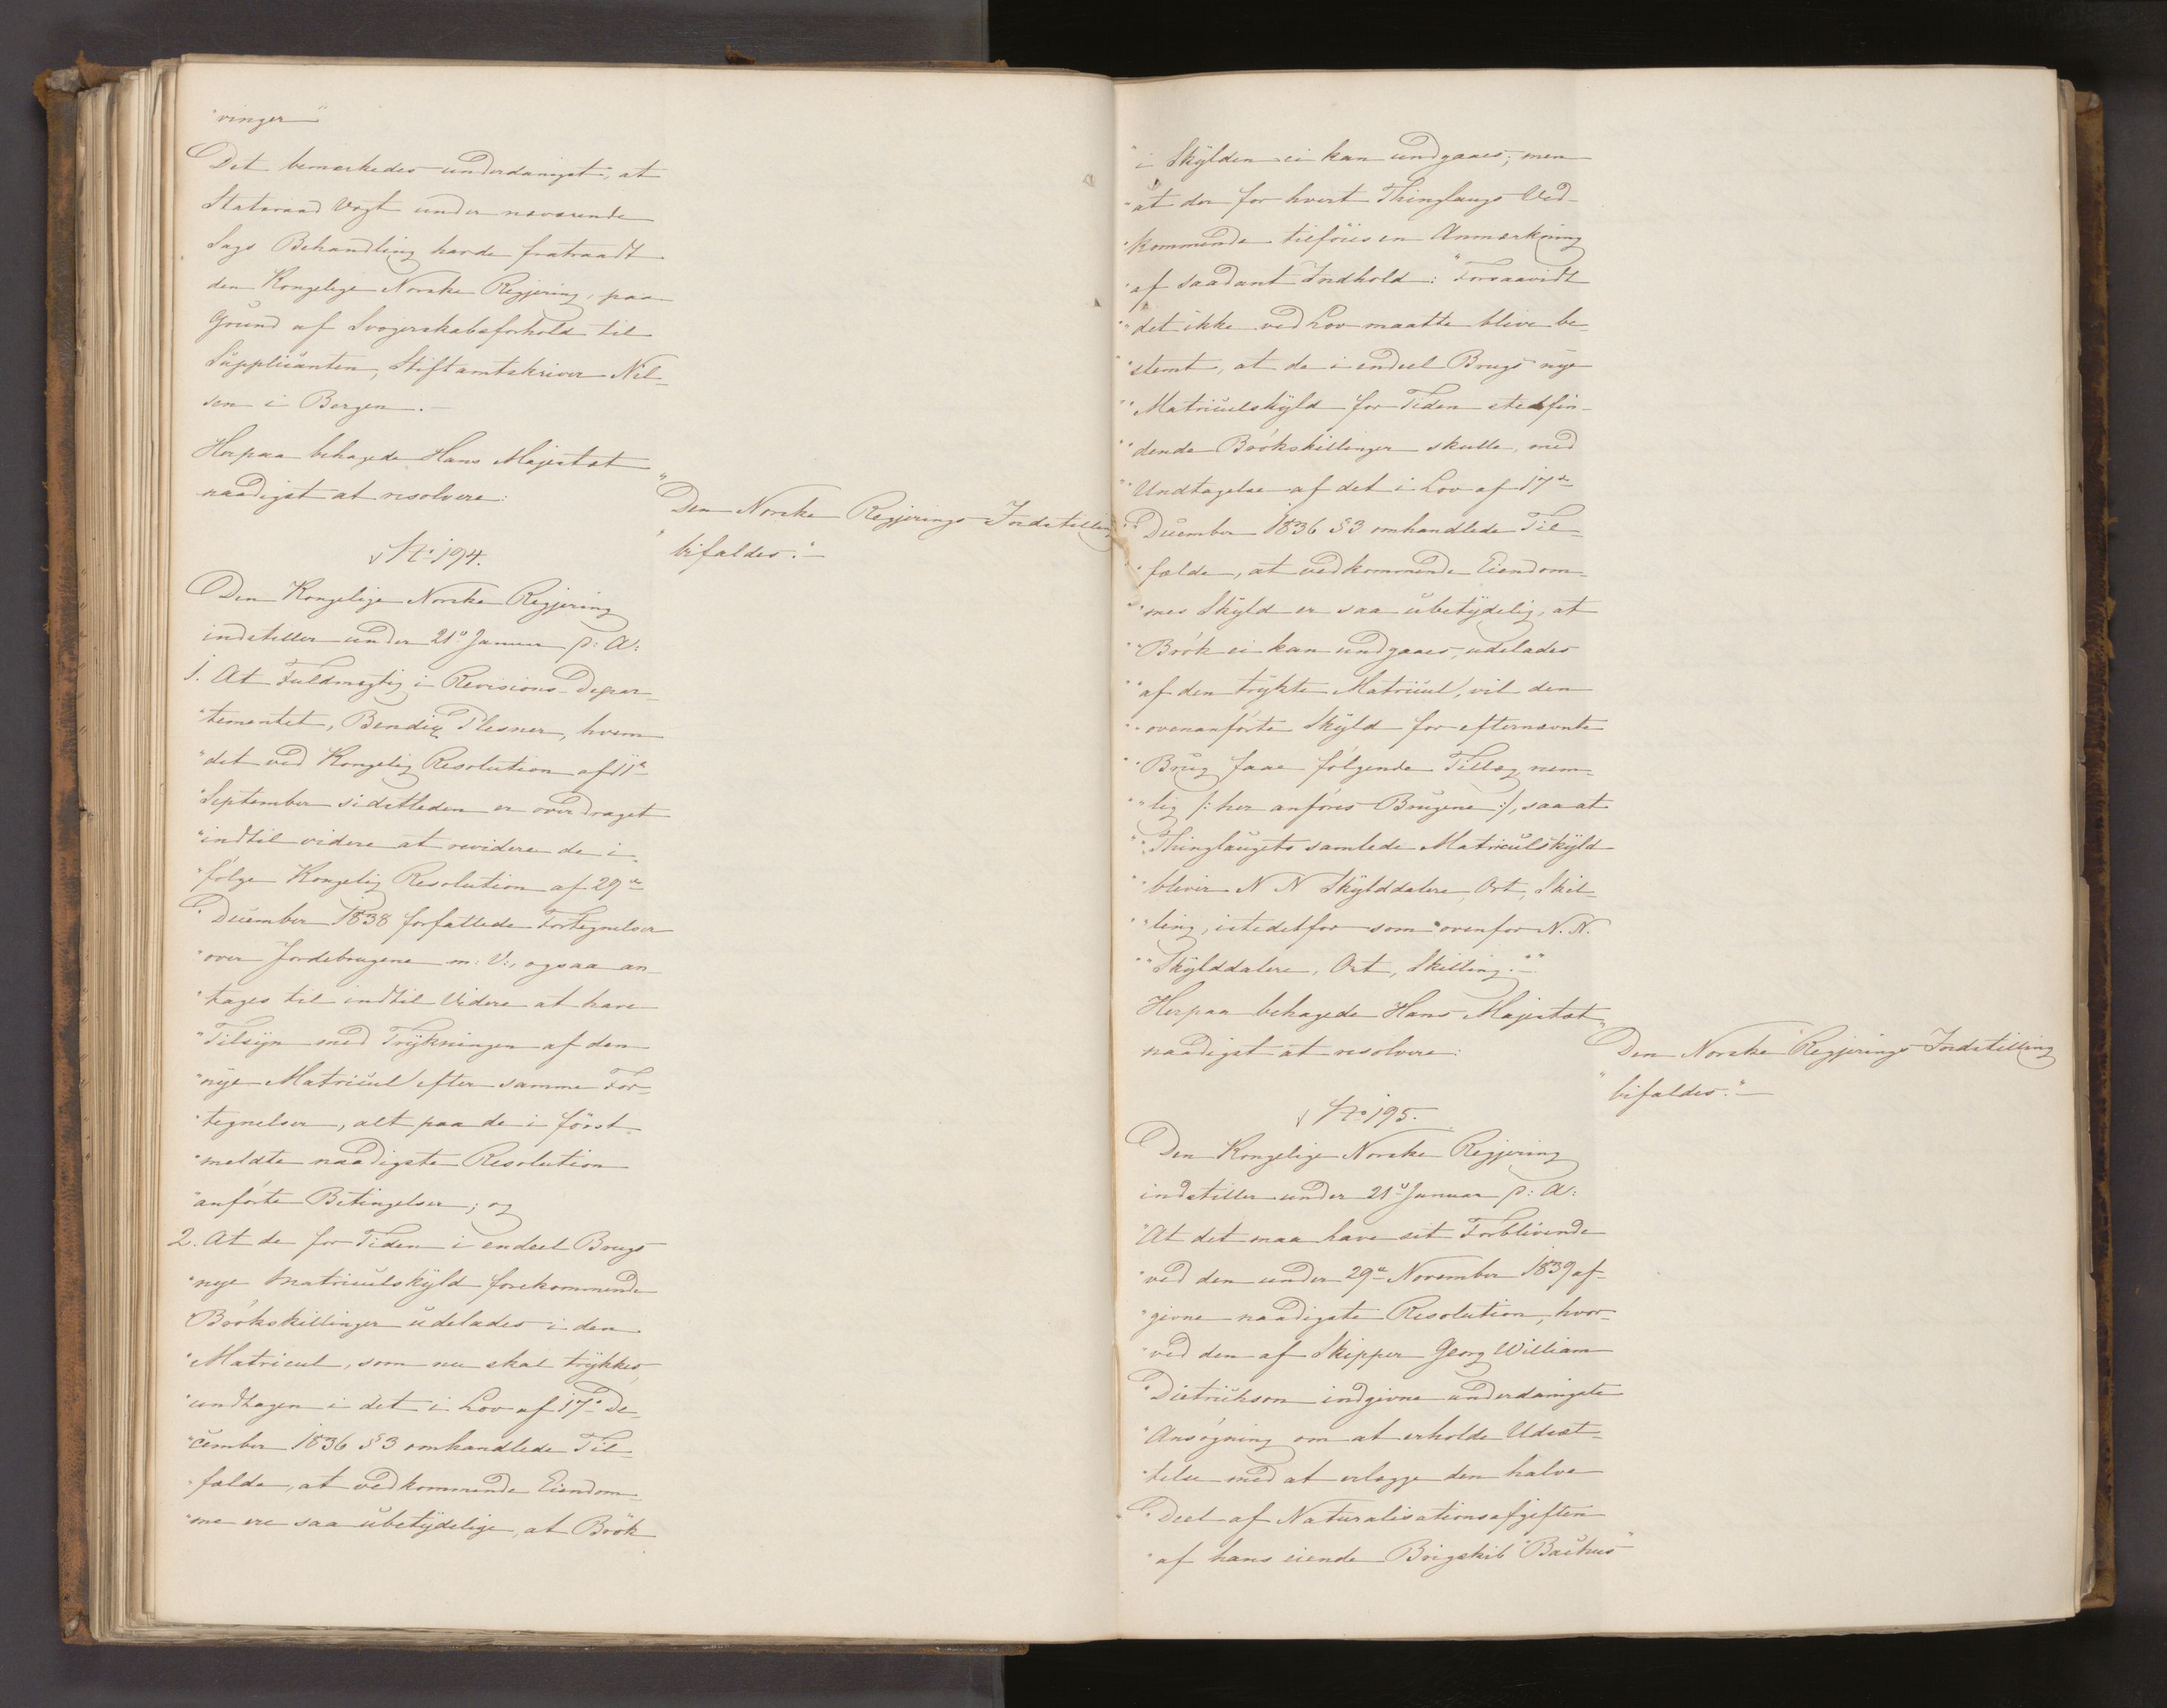 "vinger"
Det bemærkedes underdanigst, at
Statsraad Vogt under nærværende
Sags Behandling havde fratraadt
den Kongelige Norske Regjering, paa
Grund af Svogerskabsforhold til
Supplicanten, Stiftamtskriver Niel-
sen i Bergen.-
Herpaa behagede Hans Majestæt
naadigst at resolvere:
"Den Norske Regjerings Indstilling
"bifaldes."-
No 194.
Den Kongelige Norske Regjering
indstiller under 21de Januar d: A:
1. At Fuldmægtig i Revisions-Depar-
"tementet, Bendix Plesner, hvem
"det ved Kongelig Resolution af 11te
"September sidstleden er overdraget
"indtil videre at revidere de i-
"følge Kongelig Resolution af 29de
"December 1838 forfattede Fortegnelser
"over Jordebrugene m: V:, ogsaa an-
"tages til indtil Videre at have
"Tilsyn med Trykningen af den
"nye Matricul efter samme For-
"tegnelser, alt paa de i först-
"meldte naadigste Resolution
"anførte Betingelser; og
2. At de for Tiden i endeel Brugs
"nye Matriculskyld forekommende
"Brökskillinger udelades i den
"Matricul, som nu skal trykkes,
"undtagen i det i Lov af 17de De-
"cember 1836 §3 omhandlede Til-
"fælde, at vedkommende Eiendom-
"me ere saa ubetydelige, at Brök
"i Skylden ei kan undgaaes; men
"at der for hvert Thinglaugs Ved-
"kommende tilföies en Anmærkning
"af saadant Indhold: "Forsaavidt
""det ikke ved Lov maatte blive be-
""stemt, at de i endeel Brugs nye
""Matriculskyld for Tiden stedfin-
""dende Brökskillinger skulle, med
""Undtagelse af det i Lov af 17de
""December 1836 §3 omhandlede Til-
""fælde, at vedkommende Eiendom-
""mes Skyld er saa ubetydelig, at
""Brök ei kan undgaaes, udelades
""af den trykte Matricul, vil den
""ovenanførte Skyld for efternævnte
""Brug faae følgende Tillæg nem-
""lig /: her anføres Brugene :/, saa at
""Thinglaugets samlede Matriculskyld
""bliver N N Skylddalere, Ort, Skil-
""ling, istedetfor som ovenfor N. N.
""Skylddalere, Ort, Skilling.""-
Herpaa behagede Hans Majestæt
naadigst at resolvere:
"Den Norske Regjerings Indstilling
"bifaldes."-
No 195.
Den Kongelige Norske Regjering
indstiller under 21de Januar d: A:
"At det maa have sit Forblivende
"ved den under 29de November 1839 af-
"givne naadigste Resolution, hvor-
"ved den af Skipper Georg William
"Dietrichson indgivne underdanigste
"Ansøgning om at erholde Udsæt-
"telse med at erlægge den halve
"Deel af Naturalisationsafgiften
"af hans eiende Brigskib "Bachus"